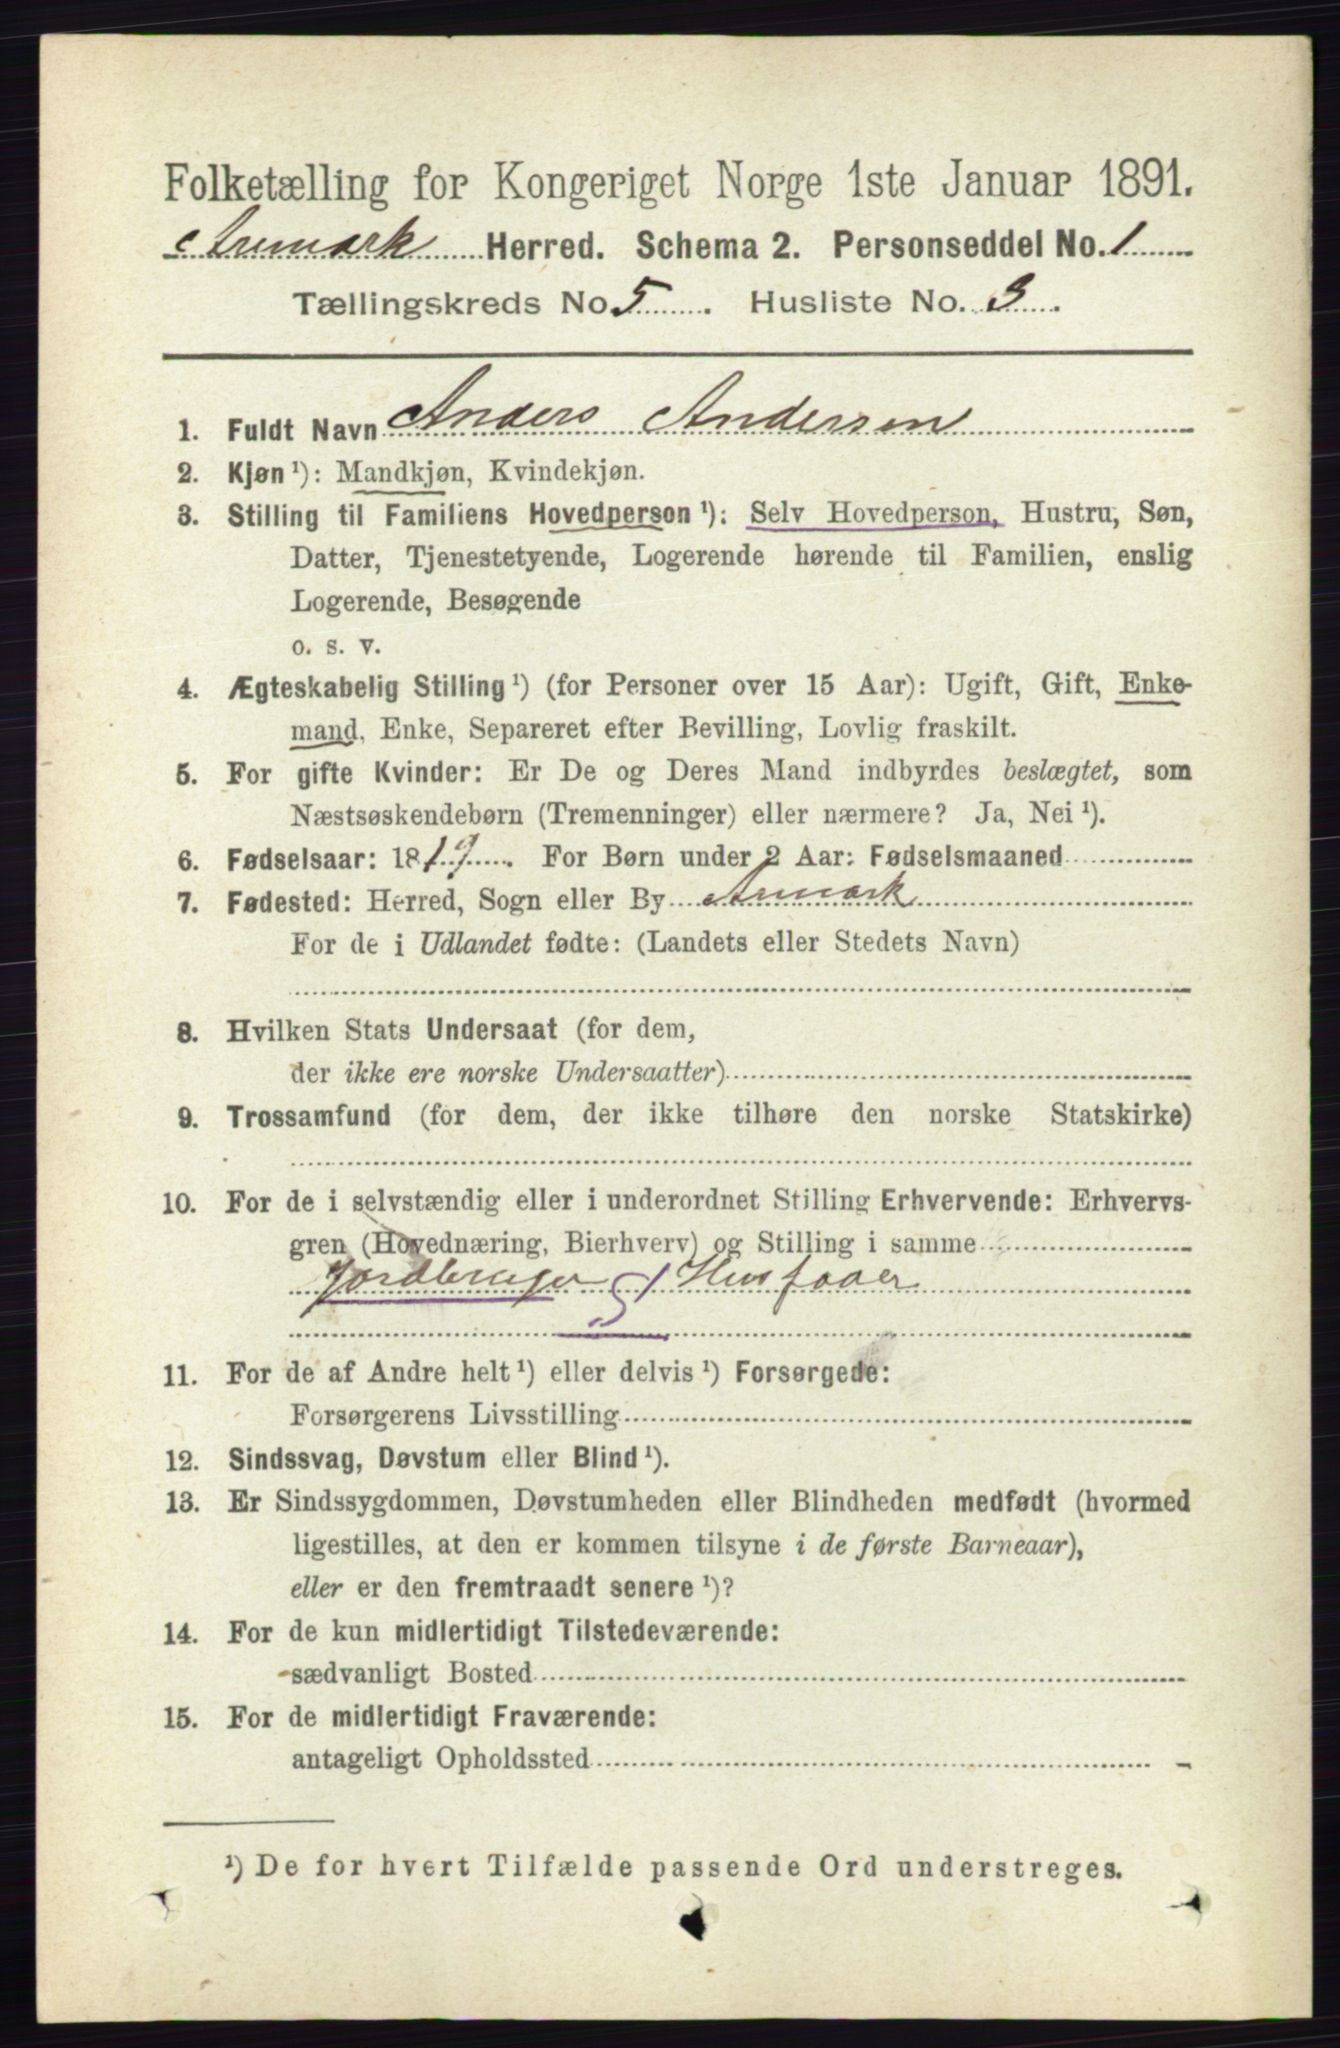 Folketælling for Kongeriget Norge 1ste Januar 1891.
Aremark Herred. Schema 2. Personseddel No. 1
Tællingskreds No. 5. Husliste No. 3.
1. Fuldt Navn Anders Andersen
2. Kjøn¹): Mandkjøn, Kvindekjøn.
3. Stilling til Familiens Hovedperson¹): Selv Hovedperson, Hustru, Søn,
Datter, Tjenestetyende, Logerende hørende til Familien, enslig
Logerende, Besøgende
o. s. v.
4. Ægteskabelig Stilling¹) (for Personer over 15 Aar): Ugift, Gift, Enke-
mand, Enke, Separeret efter Bevilling, Lovlig fraskilt.
5. For gifte Kvinder: Er De og Deres Mand indbyrdes beslægtet, som
Næstsøskendebørn (Tremenninger) eller nærmere? Ja, Nei¹).
6. Fødselsaar: 1819. For Børn under 2 Aar: Fødselsmaaned
7. Fødested: Herred, Sogn eller By Armark
For de i Udlandet fødte: (Landets eller Stedets Navn)
8. Hvilken Stats Undersaat (for dem,
der ikke ere norske Undersaatter)
9. Trossamfund (for dem, der ikke tilhøre den norske Statskirke)
10. For de i selvstændig eller i underordnet Stilling Erhvervende: Erhvervs-
gren (Hovednæring, Bierhverv) og Stilling i samme
Jordbruger Husfader
11. For de af Andre helt¹) eller delvis¹) Forsørgede:
Forsørgerens Livsstilling
12. Sindssvag, Døvstum eller Blind¹).
13. Er Sindssygdommen, Døvstumheden eller Blindheden medfødt (hvormed
ligestilles, at den er kommen tilsyne i de første Barneaar),
eller er den fremtraadt senere¹)?
14. For de kun midlertidigt Tilstedeværende:
sædvanligt Bosted
15. For de midlertidigt Fraværende:
antageligt Opholdssted
¹) De for hvert Tilfælde passende Ord understreges.